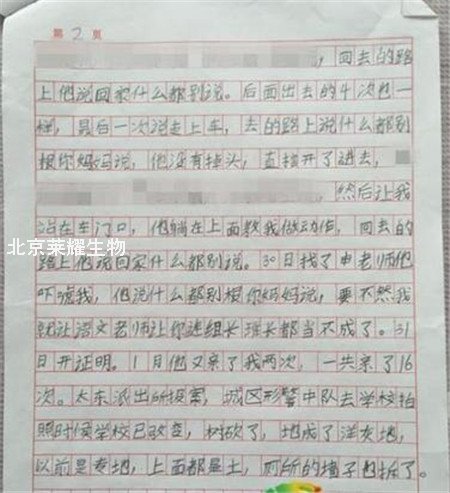 第2页
，回去的路
上他说回家什么都别说。后面出去的4次也一
样，最后一次说走上车，去的路上说什么都别
跟你妈妈说，他没有掉头，直接开了进去，
，然后让我
站在车门口，他躺在上面教我做动作，回去的
路上他说回家什么都别说。30日找了申老师他
吓唬我，他说什么都别根你妈妈说，要不然我
就让语文老师让你连组长班长都当不成了。31
日开证明。1月他又亲了我两次，一共亲了16
次。太东派出所报案，城区刑警中队去学校拍
照时候学校已改变，树砍了，地成了洋灰地，
以前是砖地，上面都是土，厕所的墙子也拆了。
北京莱耀生物